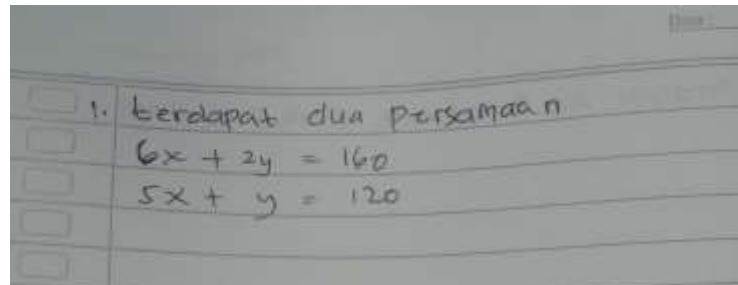 1. terdapat dua persamaan
6x + 2y = 160
5x + y = 120